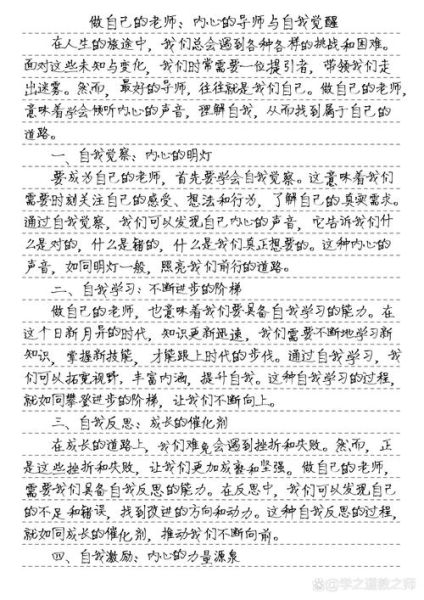 做自己的老师：内心的导师与自我觉醒
在人生的旅途中，我们总会遇到各种各样的挑战和困难。
面对这些未知与变化，我们时常需要一位提引者，带领我们走
出迷雾。然而，最好的导师，往往就是我们自己。做自己的老师，
意味着学会倾听内心的声音，理解自我，从而找到属于自己的
道路。
一、自我觉察：内心的明灯
要成为自己的老师，首先要学会自我觉察。这意味着我们
需要时刻关注自己的感受、想法和行为，了解自己的真实需求。
通过自我觉察，我们可以发现自己内心的声音，它告诉我们什
么是对的，什么是错的，什么是我们真正想要的。这种内心的
声音，如同明灯一般，照亮我们前行的道路。
二、自我学习：不断进步的阶梯
做自己的老师，也意味着我们要具备自我学习的能力。在
这个日新月异的时代，知识更新迅速，我们需要不断地学习新
知识，掌握新技能，才能跟上时代的步伐。通过自我学习，我
们可以拓宽视野，丰富内涵，提升自我。这种自我学习的过程，
就如同攀登进步的阶梯，让我们不断向上。
三、自我反思：成长的催化剂
在成长的道路上，我们难免会遇到挫折和失败。然而，正
是这些挫折和失败，让我们更加成熟和坚强。做自己的老师，
需要我们具备自我反思的能力。在反思中，我们可以发现自己
的不足和错误，找到改进的方向和动力。这种自我反思的过程，
就如同成长的催化剂，推动我们不断向前。
四、自我激励：内心的力量源泉
@学之道教之师